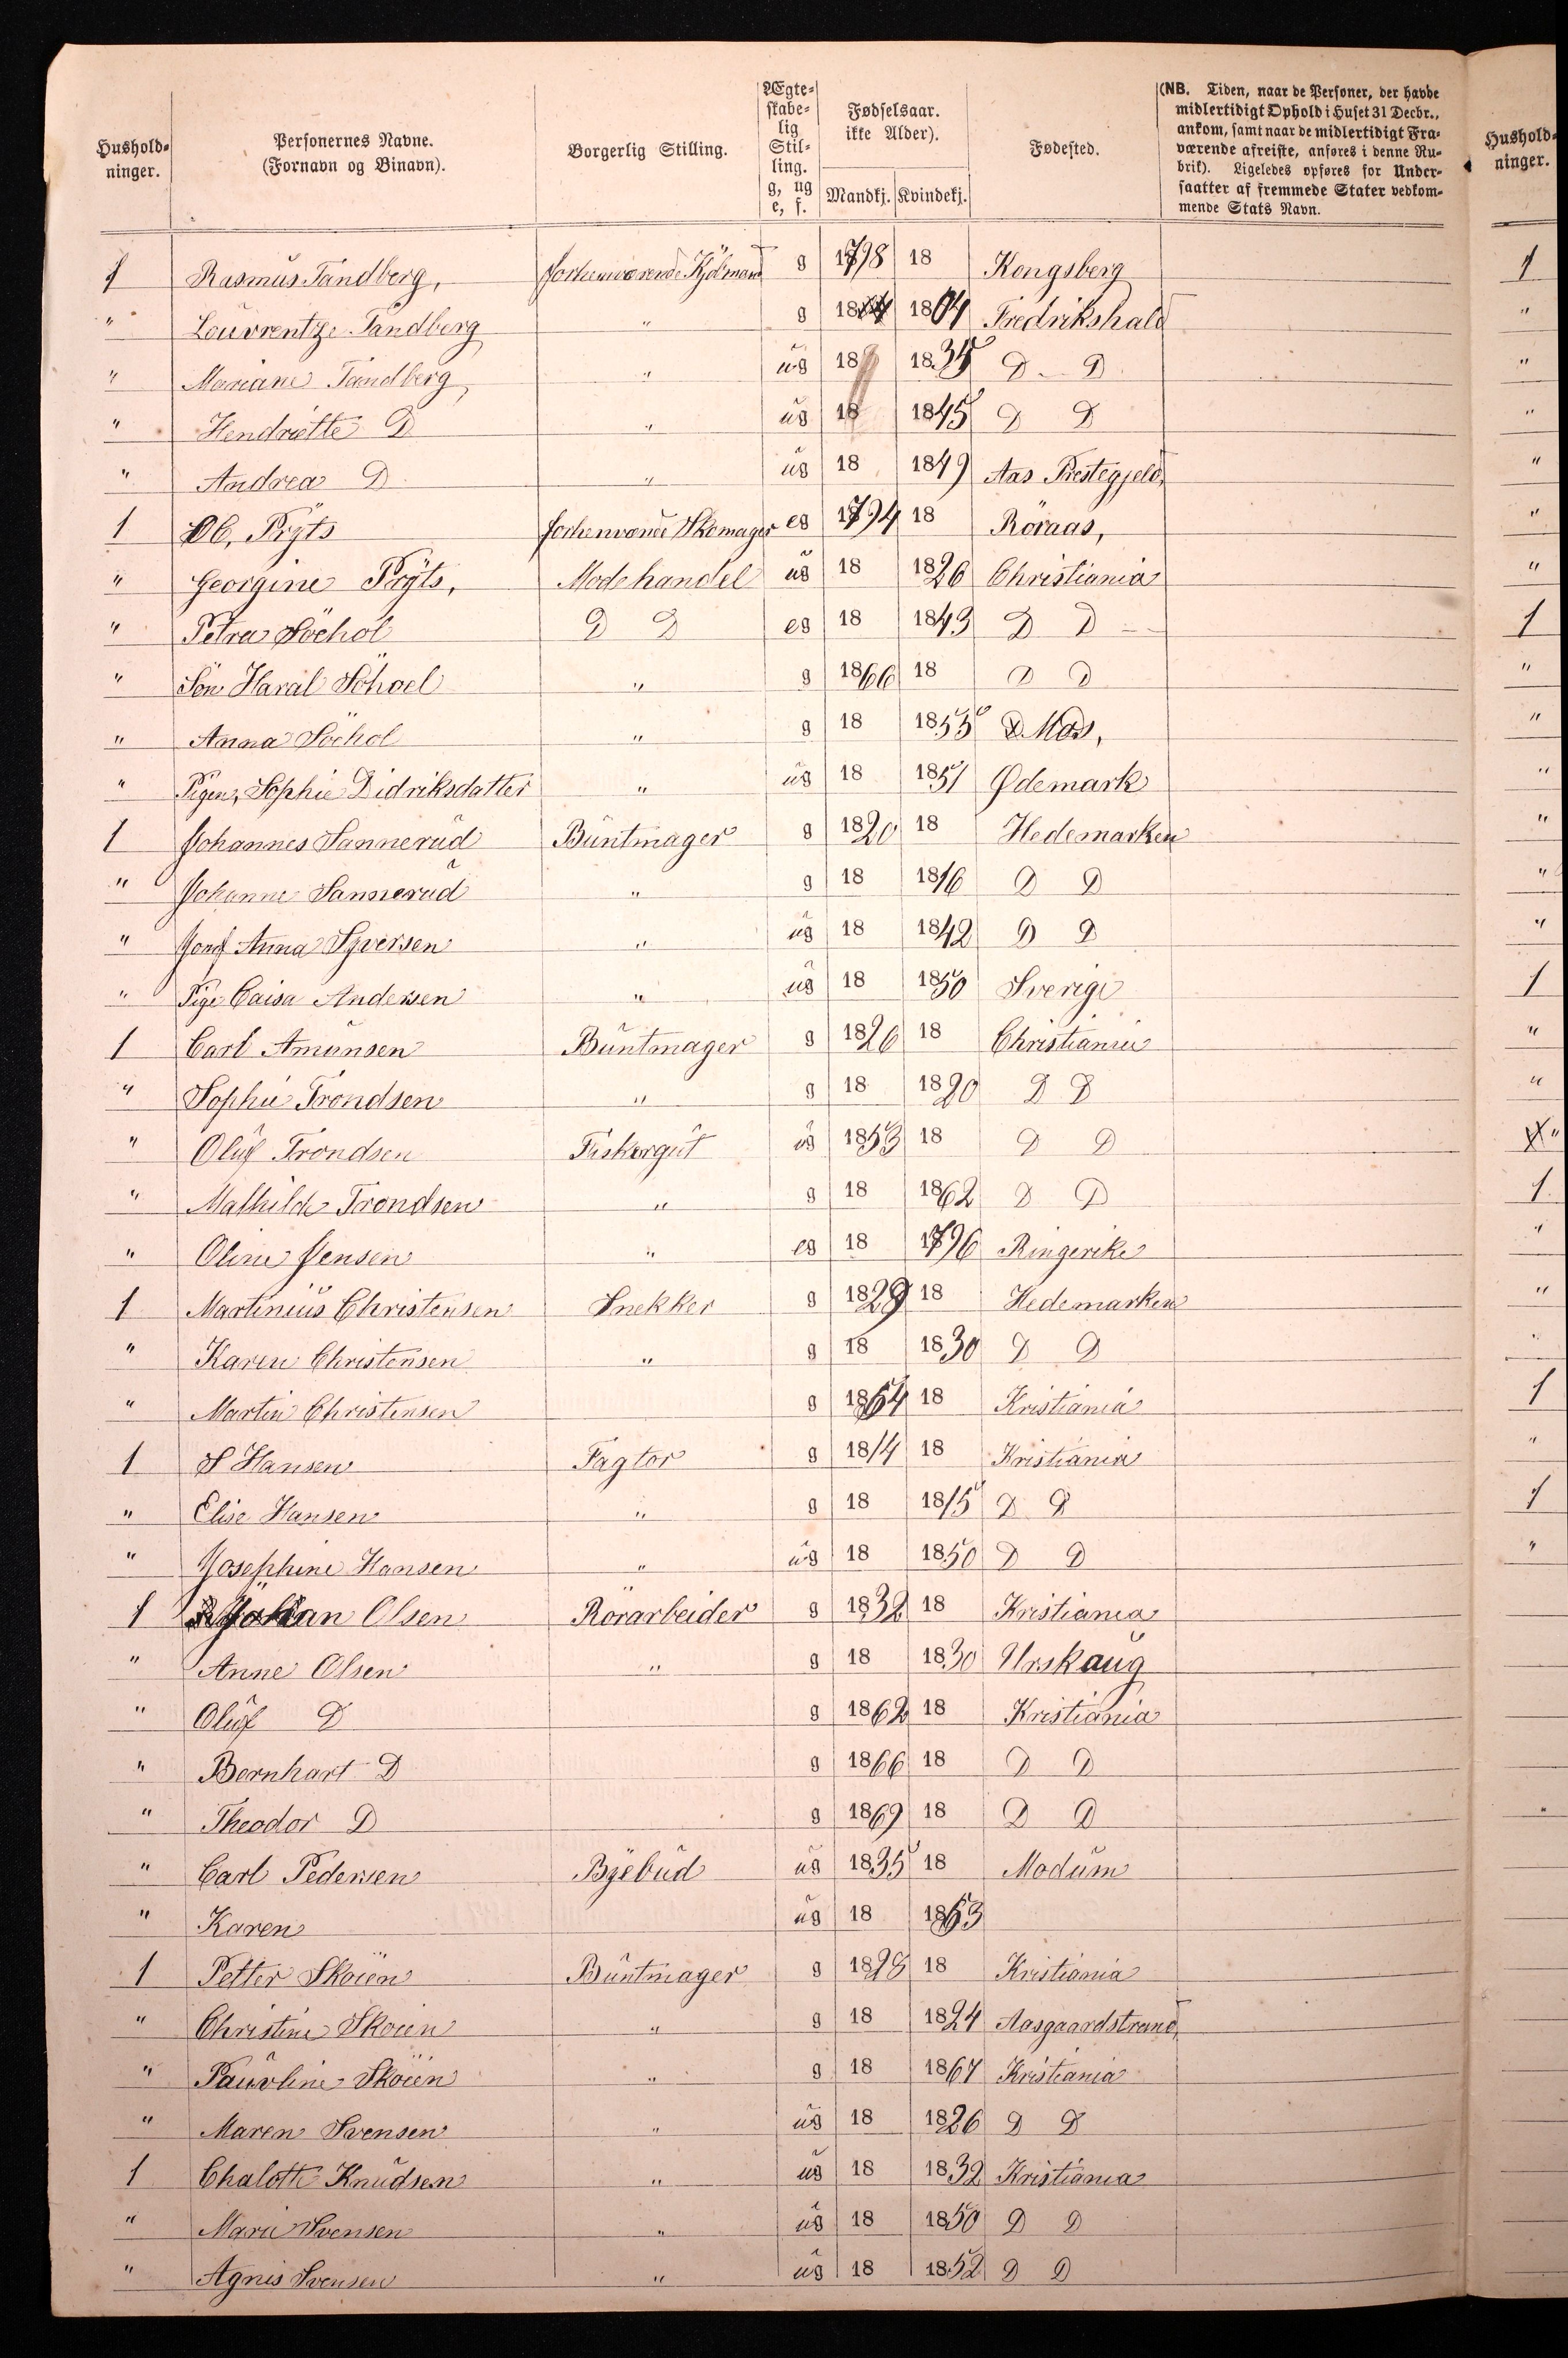 Hushold-
ninger.
Personernes Navne.
(Fornavn og Binavn).
Borgerlig Stilling.
Ægte-
skabe-
lig
Stil-
ling.
g, ug
e, f.
Fødselsaar.
ikke Alder).
Mandkj. Kvindekj.
Fødested.
(NB. Tiden, naar de Personer, der havde
midlertidigt Ophold i Huset 31 Decbr.,
ankom, samt naar de midlertidigt Fra-
værende afreiste, anføres i denne Ru-
brik). Ligeledes opføres for Under-
saatter af fremmede Stater vedkom-
mende Stats Navn.
Hushold-
ninger.
1 Rasmus Tandberg, forhenværende Kjöbmand g 1798 18 Kongsberg 1
" Louvrentze Tandberg " g 18 1804 Fredrikshald "
" Mariane Tandberg " ug 18 1835 D D "
" Hendriette D " ug 18 1845 D D "
" Andrea D " ug 18 1849 Aas Prestegjeld "
1 Ob, Prÿts Skomager eg 1794 18 Röraas, "
" Georgine Prÿts, Modehandel ug 18 1826 Christiania "
" Petra Söehol D D eg 18 1843 D D 1
" Sön Haral Söhoel " g 1866 18 D D "
" Anna Söehol " g 18 1855 Mos, "
" Pigen, Sophie Didriksdatter " ug 18 1851 Ødemark "
1 Johannes Sannerud Buntmager g 1820 18 Hedemarken "
" Johanne Sannerud " g 18 1816 D D "
" Jomf Anna Syversen " ug 18 1842 D D "
" Pige Caisa Andersen " ug 18 1850 Sverige 1
1 Carl Amunsen Buntmager g 1826 18 Christiania "
" Sophie Trondsen " g 18 1820 D D "
" Oluf Trondsen Fiskergut ug 1853 18 D D "
" Mathilde Trondsen " g 18 1862 D D 1
" Oline Jensen " eg 18 1796 Ringerike "
1 Martinius Christensen Snekker g 1829 18 Hedemarken "
" Karen Christensen " g 18 1830 D D "
" Martin Christensen g 1864 18 Kristiania 1
1 S Hansen Fagtor g 1814 18 Kristiania "
" Elise Hansen " g 18 1815 D D 1
" Josephine Hansen " ug 18 1850 D D "
1 Johan Olsen Rörarbeider g 1832 18 Kristiania
" Anne Olsen " g 18 1830 Urskaug
" Oluf D g 1862 18 Kristiania
" Bernhart D g 1866 18 D D
" Theodor D g 1869 18 D D
" Carl Pedersen Byebud ug 1835 18 Modum
" Karen ug 18 1863
1 Petter Skoien Buntmager g 1828 18 Kristiania
" Christine Skoien " g 18 1824 Aasgaardstrand
" Pauvline Skoien " g 18 1867 Kristiania
" Maren Svensen " ug 18 1826 D D
1 Chalotte Knudsen " ug 18 1832 Kristiania
" Marie Svensen " ug 18 1850 D D
" Agnis Svensen " ug 18 1852 D D